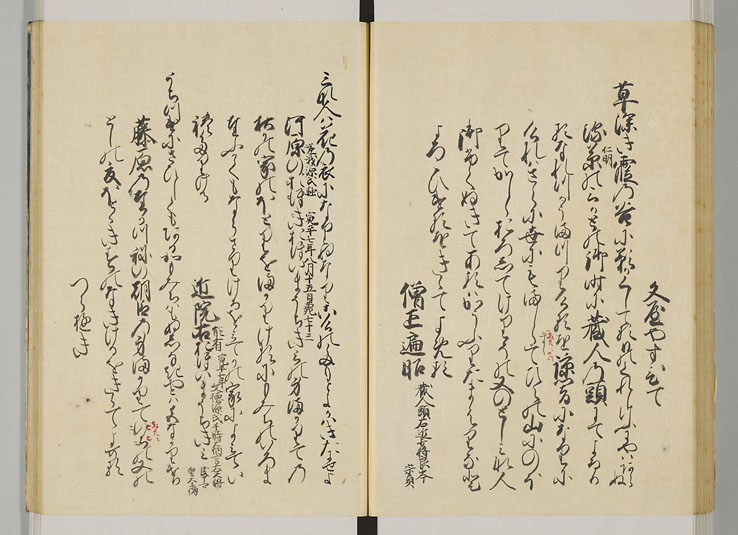 文屋やすひて
草深き霞の谷に影かくしてる日のくれしけふにやはあらぬ
仁明
深草のみかとの御時に蔵人の頭にてよるひる
なれつかうまつりけるを諒闇になりに
けれはさらに世にもましらすしてひえの山にのほ
りてかしらおろしてけりその又のとしみな人
御ふくぬきてあるはかうふりたまはりなと
よろこひけるをきゝてよめる
僧正遍昭
三な人ハ花の衣になりぬなりこけのたもとよかはきたにせよ
寛平七年八月廿五日薨七十三
河原のおほいまうちきみの身まかりての
秋かの家のほとりをまかりけるにもみちのいろま
たふかくもならさりけるを見てかの家によみていれ
たりける
近院右のおほいまうちきみ
うちつけにさひしくもあるかもみちはもぬしなきやとは色なかりけり
藤原のたかつねの朝臣の身まかりての又の
としの夏ほとゝきすのなきけるをきゝてよめる
つらゆき